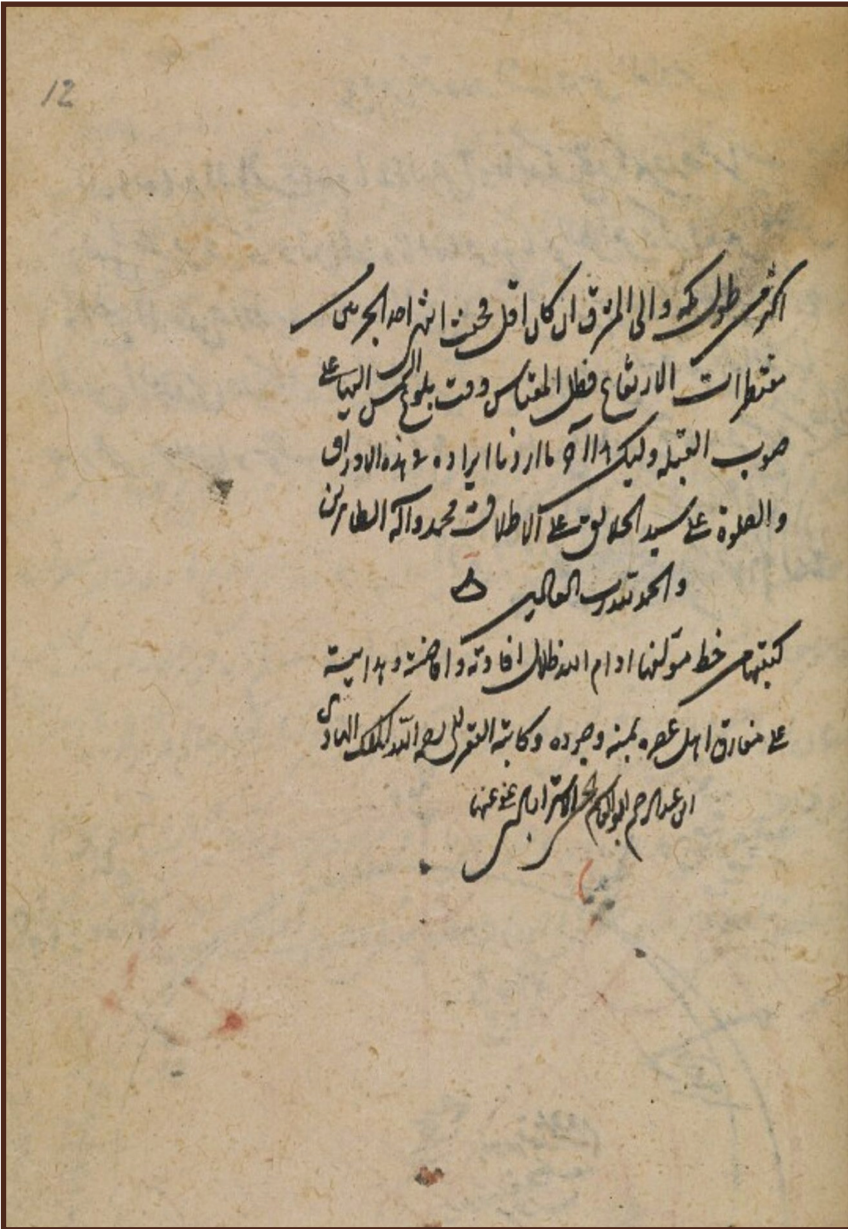 12
اكثر من طول مكة والى المشرق ان كان اقل فحيث انتهى احد الجزئين من
مقنطرات الارتفاع فظل المقياس وقت بلوغ الشمس اليها على
صوب القبله وليكن هذا آخر ما اردنا ايراده في هذه الاوراق
والصلوة على سيد الخلائق على الاطلاق محمد وآله الطاهرين
والحمد لله رب العالمين
كتبتها من خط مؤلفها ادام الله ظلال افادته وافاضته وهدايته
على مفارق اهل عصره بمنه وجوده وكاتبه الفقير الى رحمة الله الملك الهادي
ابن عبد الرحيم ابو القاسم عفى عنهما